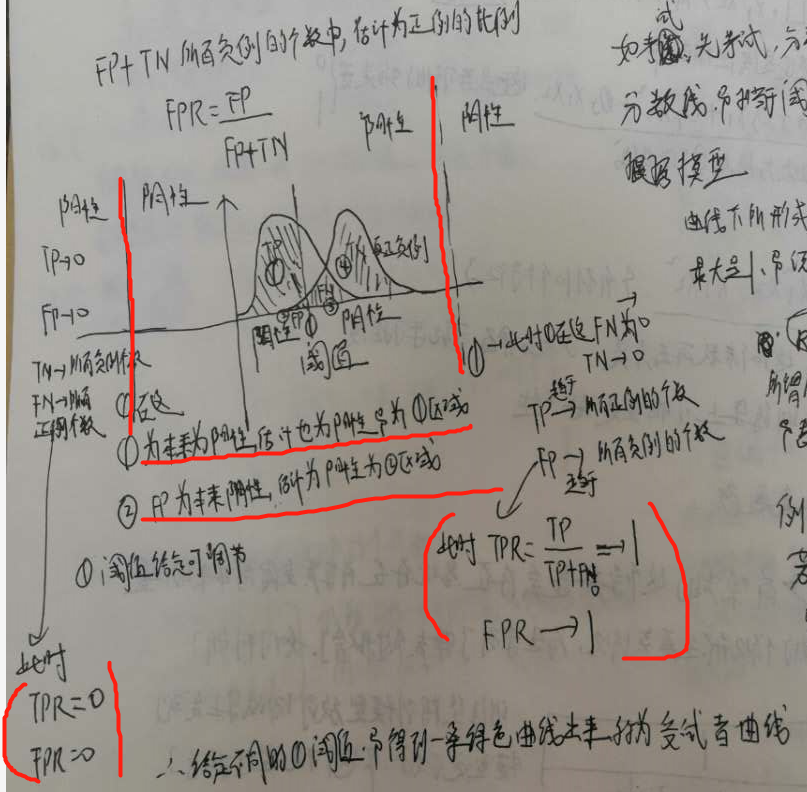 FP+TN 所有负例的个数中,估计为正例的比例
FPR=FP/(FP+TN)
阳性 阴性
阳性 阴性
TP→0
FP→0
TN→所有负例个数
FN→所有正例个数
TP ①
④ TN 真正负例
FN ③
②FP
阳性 ① 阴性
阈值
①在这
①→此时①在这 FN为0
TN→0
TP 趋于→所有正例的个数
FP→趋于 所有负例的个数
①为本来为阳性,估计也为阳性 即为①区域
②FP为本来阴性,估计为阳性为②区域
①阈值给定可调节
此时 TPR=TP/(TP+FN) ⇒1
0
FPR→1
此时
TPR=0
FPR=0
∴给定不同的①阈值,即得到一条绿色曲线出来,称为受试者曲线
试
如考 先考试,分
分数线,即当于阈
根据模型
曲线下所形成
最大是1,即
所谓
例
若